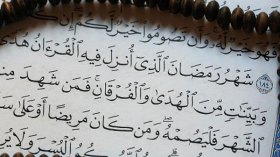 فَهُوَ خَيْرٌ لَّهُۥ وَأَن تَصُومُوا۟ خَيْرٌ لَّكُمْ إِن كُن
شَهْرُ رَمَضَانَ ٱلَّذِىٓ أُنزِلَ فِيهِ ٱلْقُرْءَانُ هُ
وَبَيِّنَٰتٍ مِّنَ ٱلْهُدَىٰ وَٱلْفُرْقَانِ فَمَن شَهِدَ مِنكُ
ٱلشَّهْرَ فَلْيَصُمْهُ وَمَن كَانَ مَرِيضًا أَوْ عَلَىٰ سَ
ٱلْيُسْرَ وَلَا يُر